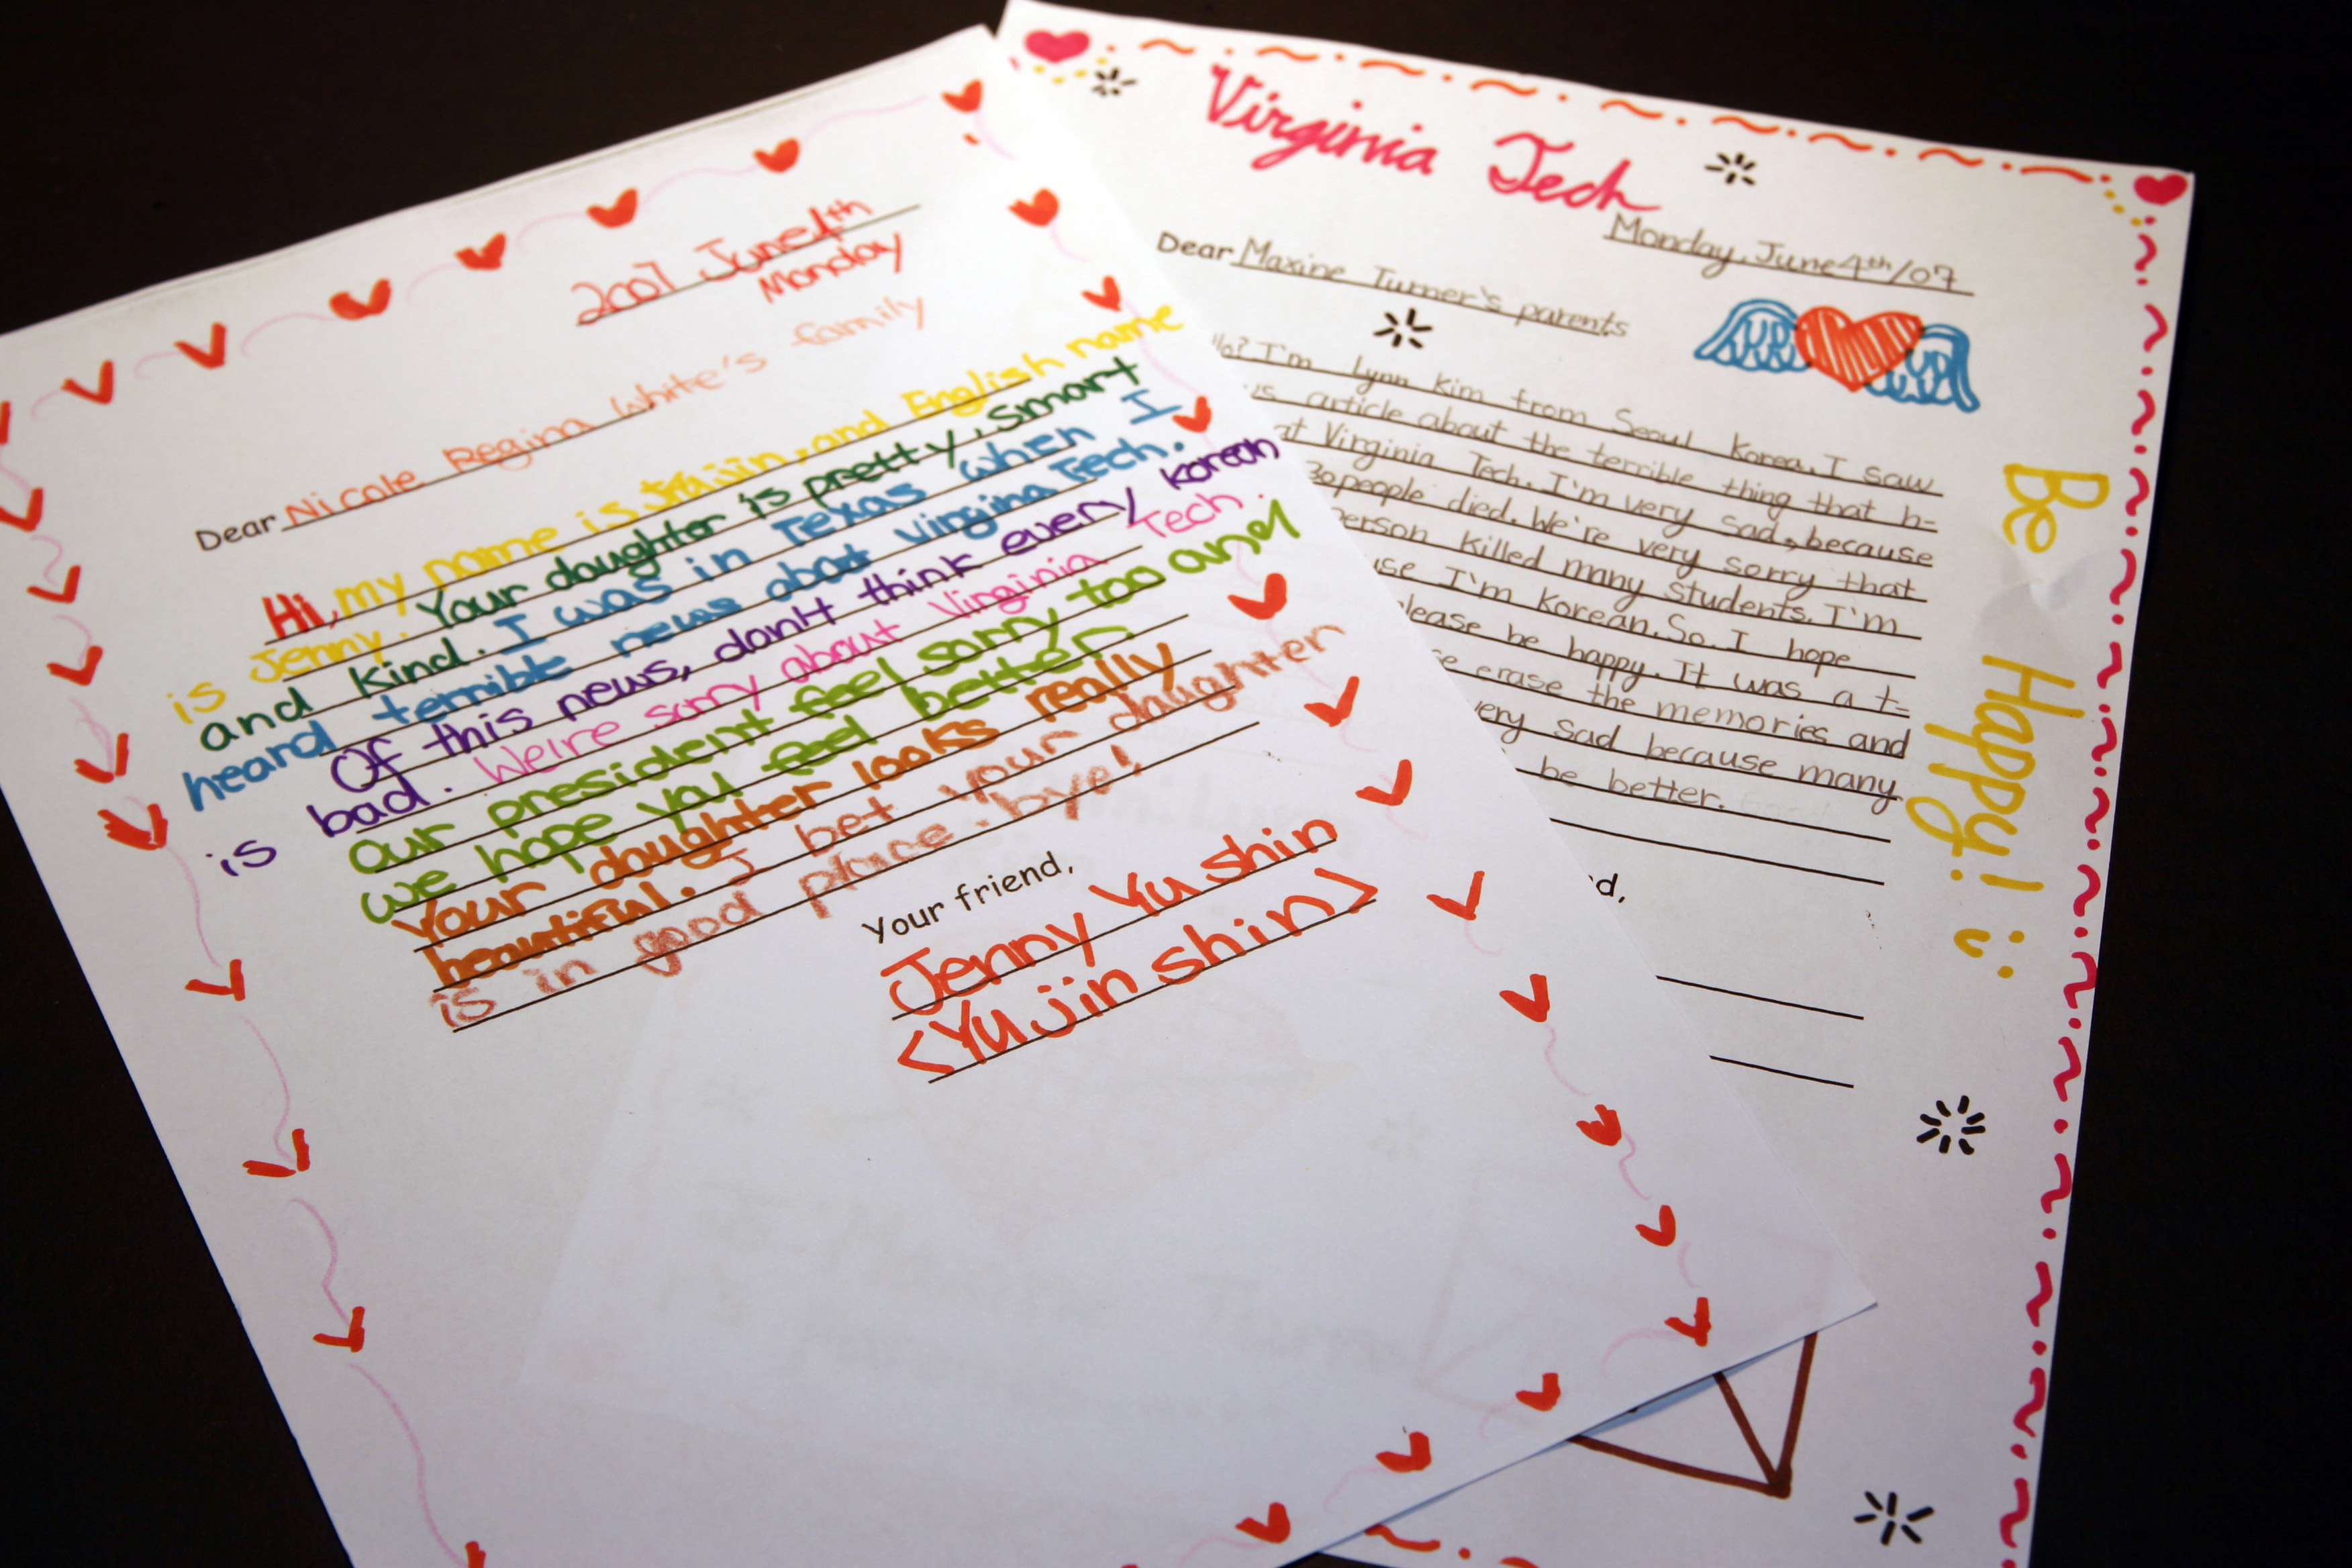 2007 June 4th
Monday
Dear Nicole Regina White's family
Hi, my name is Yujin, and English name
is Jenny. Your daughter is pretty, smart
and kind. I was in Texas when I
heard terrible news about Virginia Tech.
Of this news, don't think every korean
is bad. We're sorry about Virginia Tech.
Our president feel sorry too and
we hope you feel better.
Your daughter looks really
beautiful. I bet your daughter
is in good place. bye!
Your friend,
Jenny Yu shin
<Yujin shin>
Virginia Tech
Monday, June 4th/07
Dear Maxine Turner's parents
I'm Lynn kim from Seoul Korea. I saw
article about the terrible thing that h-
at Virginia Tech. I'm very sad, because
30people died. We're very sorry that
person killed many students. I'm
I'm Korean. So, I hope
please be happy. It was a t-
erase the memories and
very sad because many
be better.
d,
Be Happy! :)